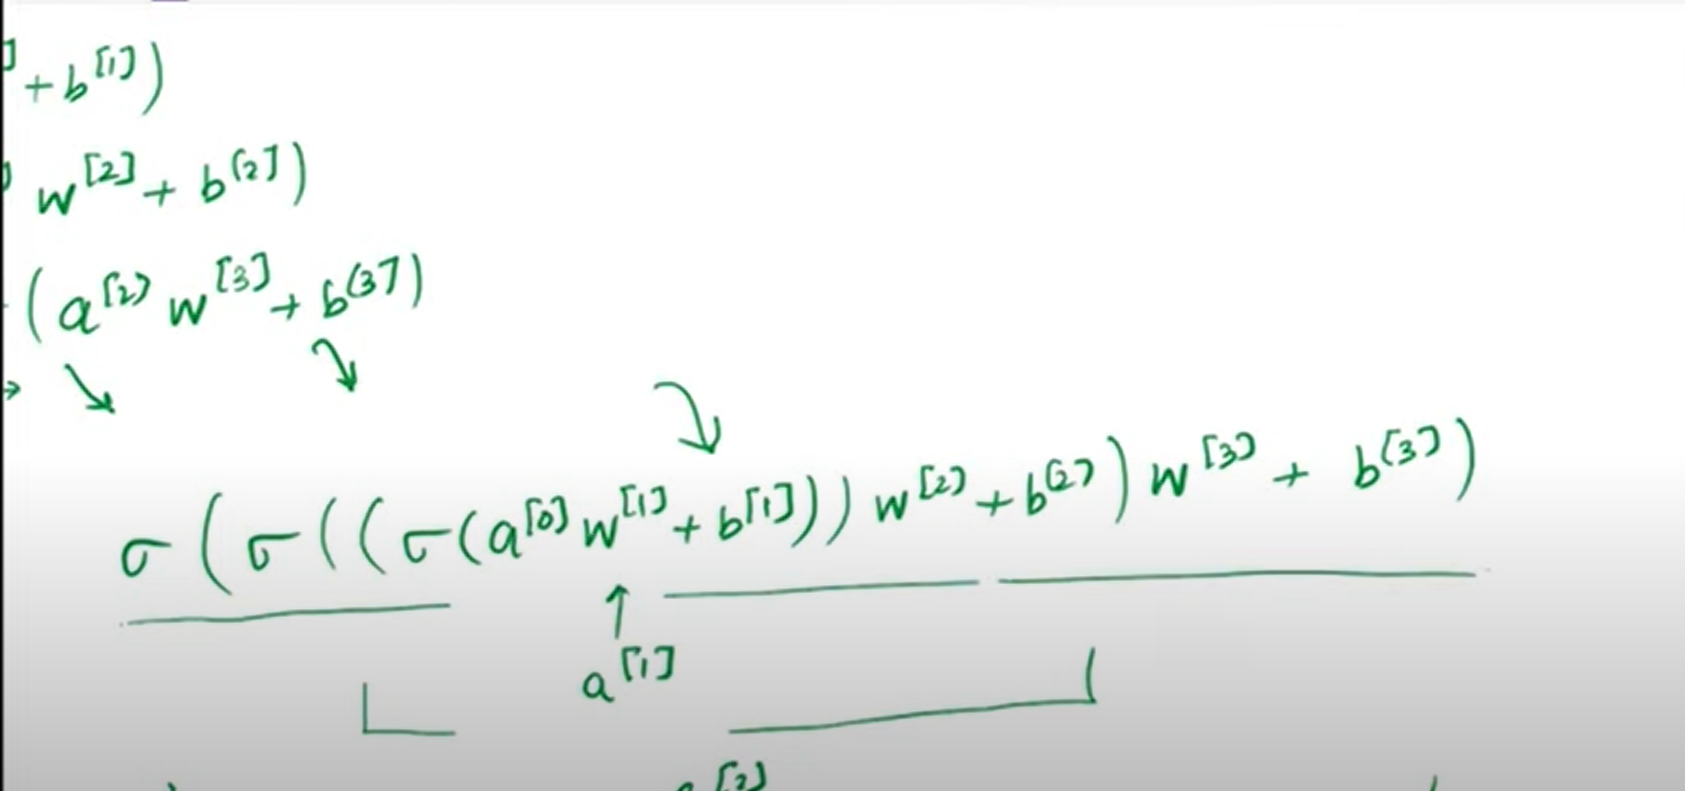 ] + b^[1])
] w^[2] + b^[2])
(a^[2] w^[3] + b^[3])
σ(σ((σ(a^[0] w^[1] + b^[1])) w^[2] + b^[2]) w^[3] + b^[3])
a^[1]
a^[2]